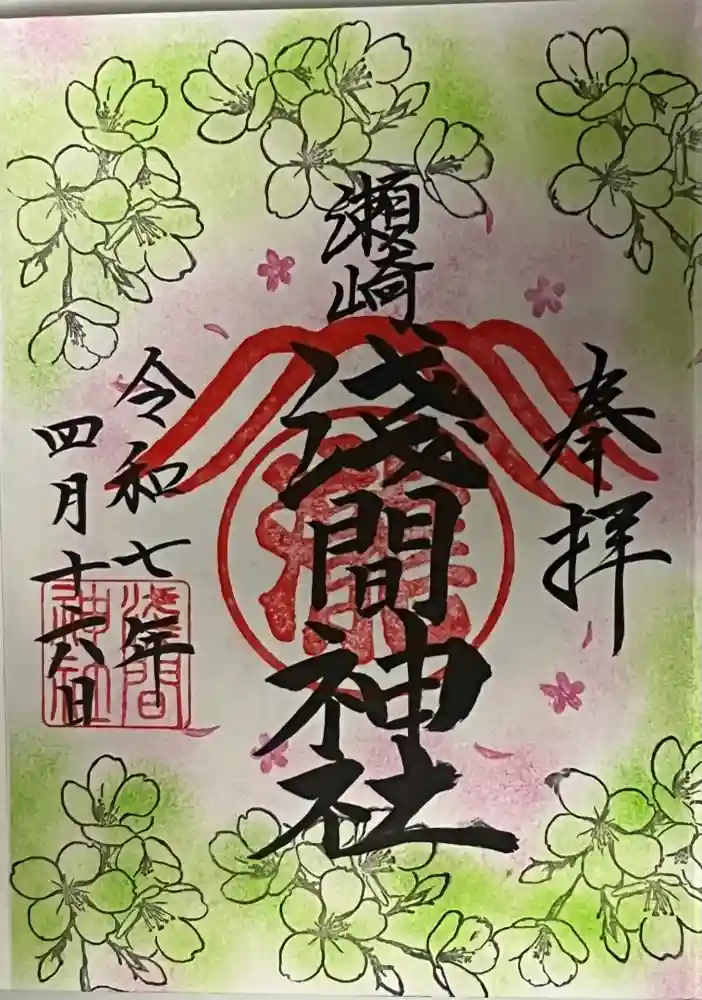 奉拝
瀬崎
浅間神社
令和七年
四月十六日
浅間
神社